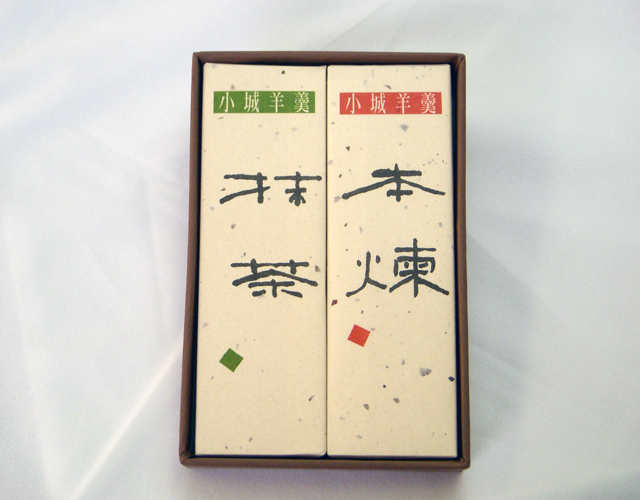 小城羊羹
本煉
小城羊羹
抹茶